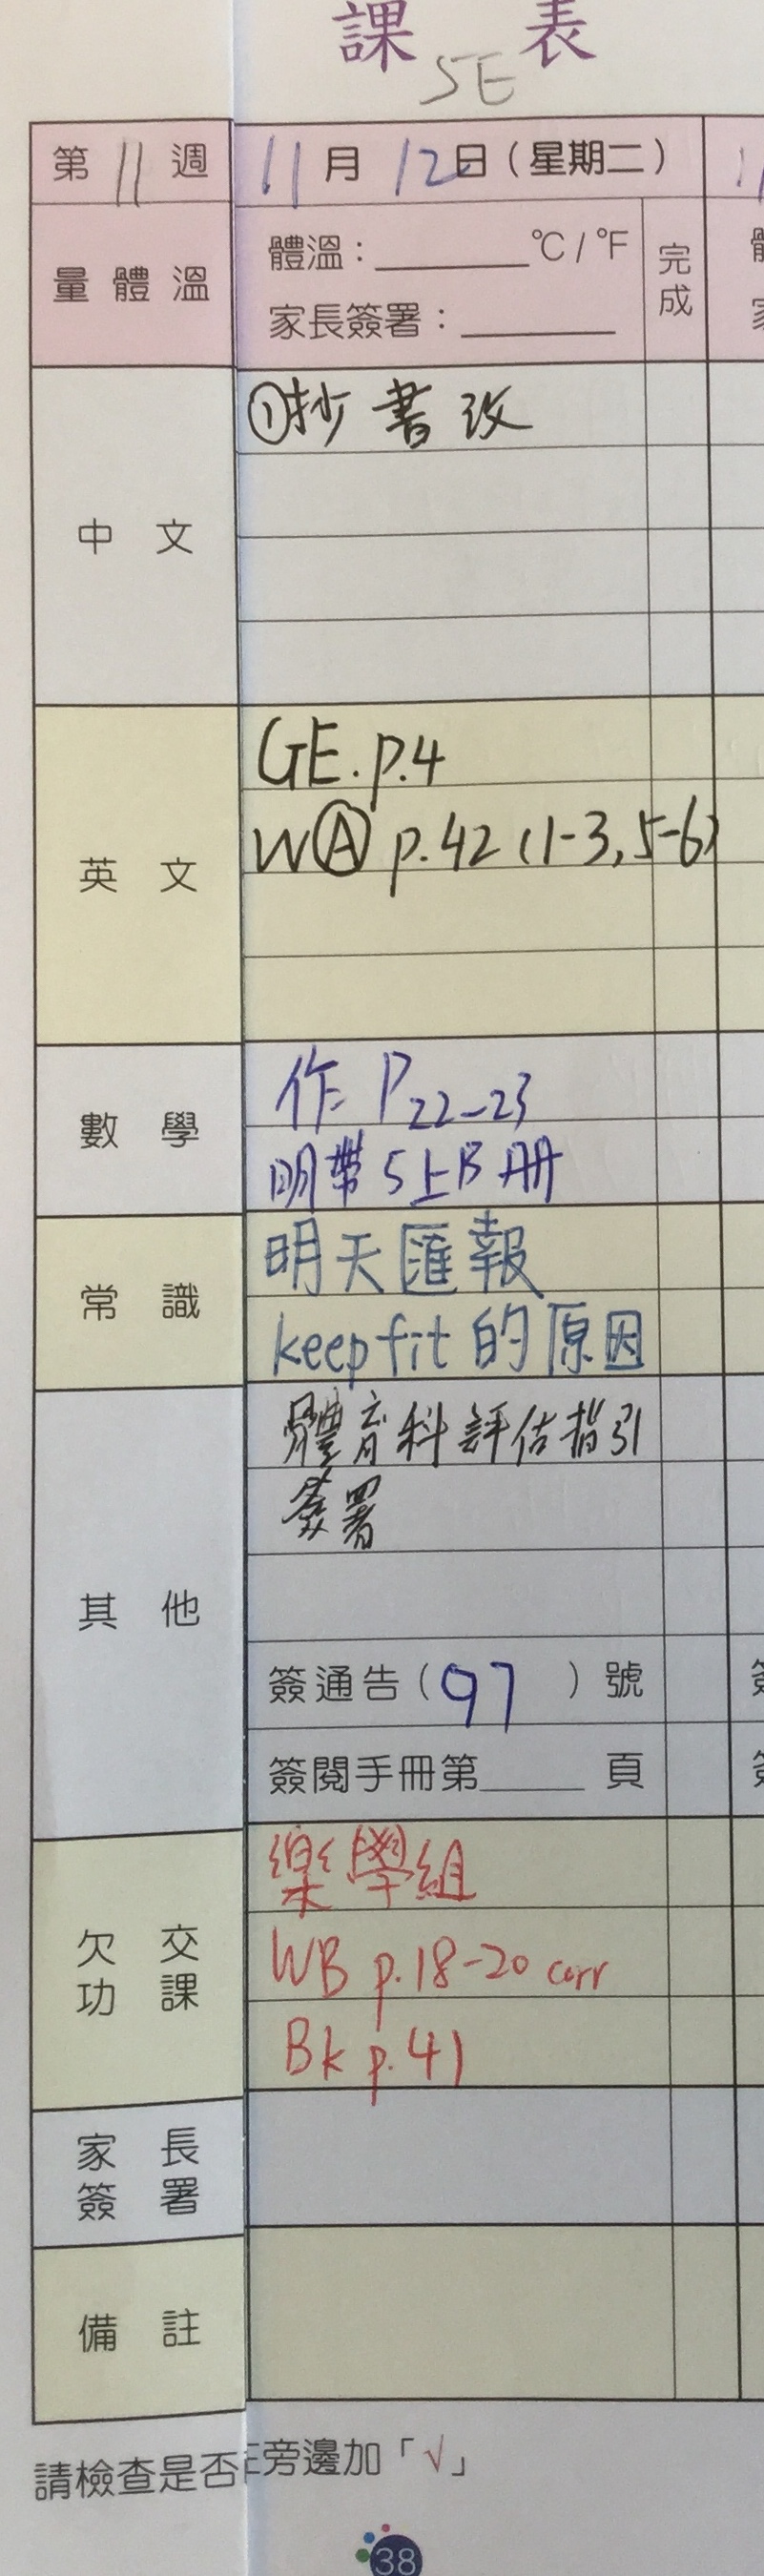 課 表
5E
第 11 週
11 月 12 日(星期二)
量體溫
體溫:______°C / °F
完成
家長簽署:______
中文
①抄書改
英文
GE. p.4
WⒶ p.42 (1-3, 5-6)
數學
作 P22-23
明帶5上B册
常識
明天匯報
keep fit 的原因
其他
體育科評估指引
簽署
簽通告(97)號
簽閱手冊第____頁
欠交功課
樂學組
WB p.18-20 corr
Bk p.41
家長簽署
備註
請檢查是否
旁邊加「√」
38